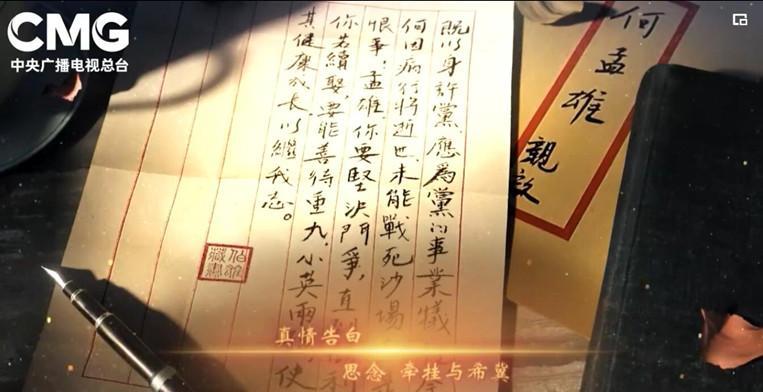 CMG
中央广播电视总台
何孟雄
親啟
既以身許黨，應為黨的事業犧
何因病行將逝世，未能戰死沙場
恨事！孟雄，你要堅決鬥爭，直
你若續娶，要能善待重九、小英兩，使
其健康成長，以繼我志。
真情告白
思念 牵挂与希冀